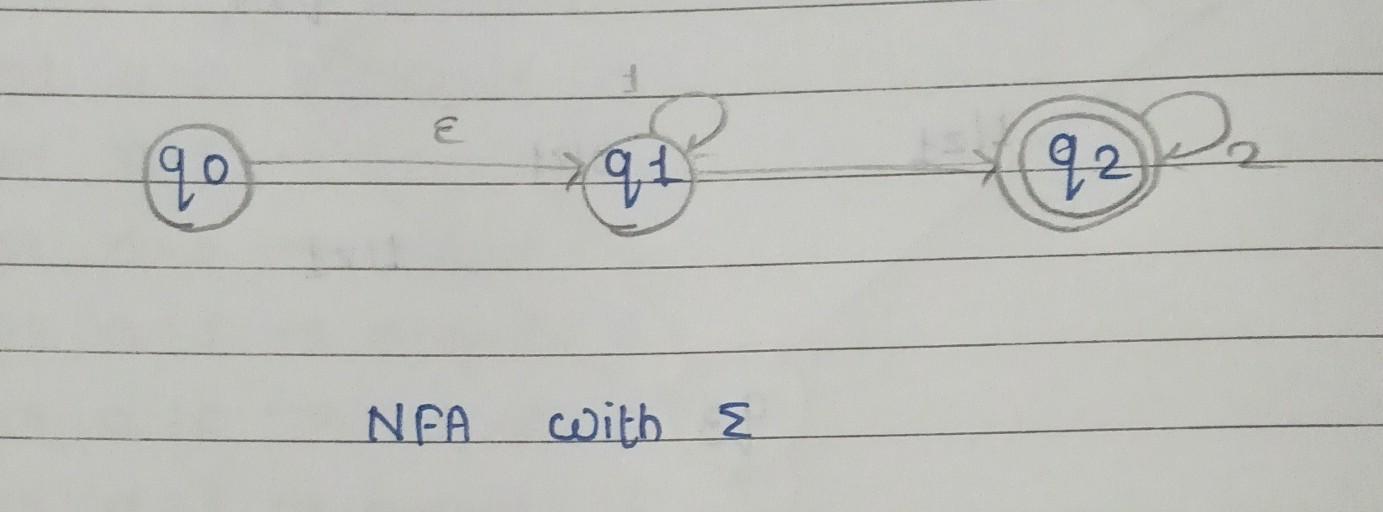 1
ε
q0 q1 q2 2
NFA with Σ